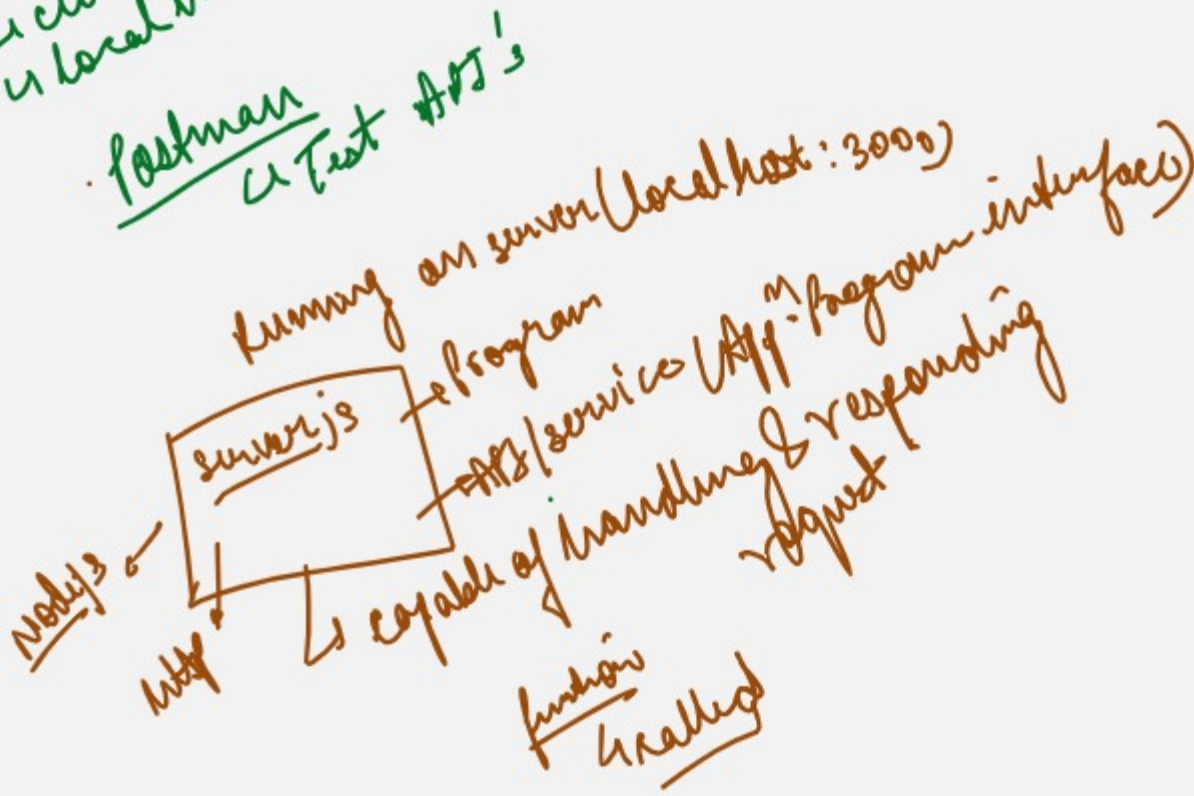 Local
Postman
Test API's
Running on server (localhost: 3000)
server.js
Program
API/service (Appn. Program interface)
capable of handling & responding
request
Nodejs
http
function
called